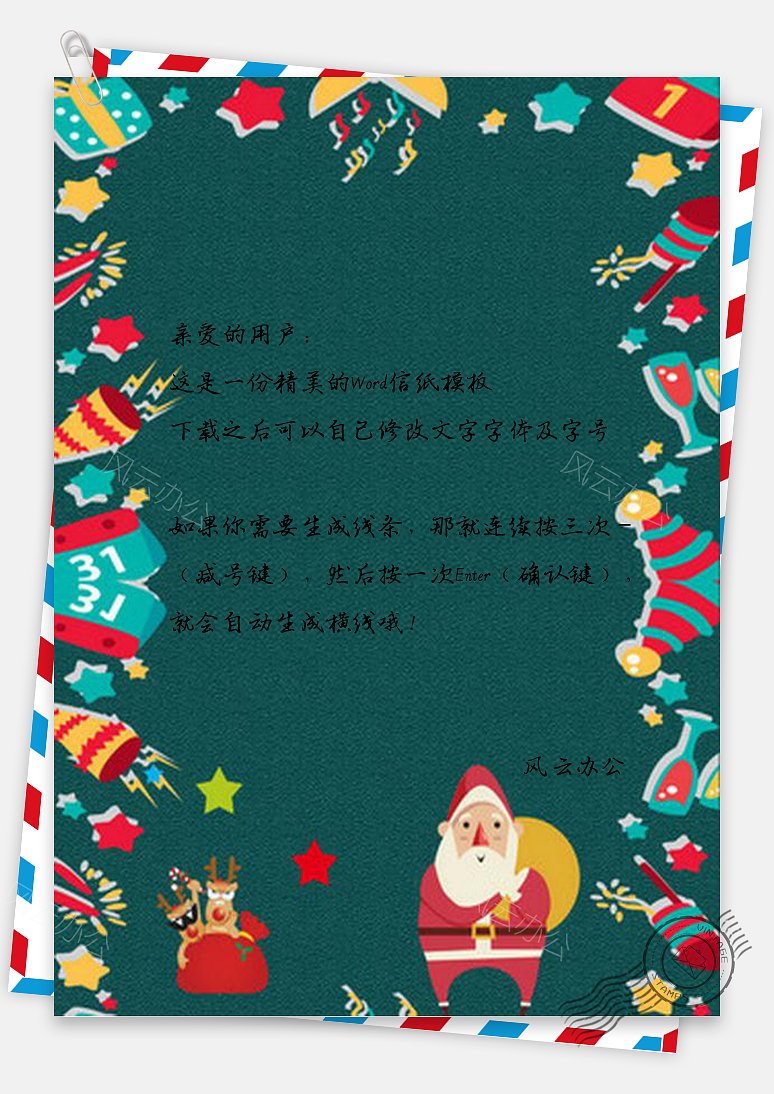 1
亲爱的用户：
这是一份精美的Word信纸模板
下载之后可以自己修改文字字体及字号
风云办公
风云办公
如果你需要生成线条，那就连续按三次－
（减号键），然后按一次Enter（确认键），
就会自动生成横线哦！
31
31
风云办公
风云办公
风云办公
VINTAGE
STAMP